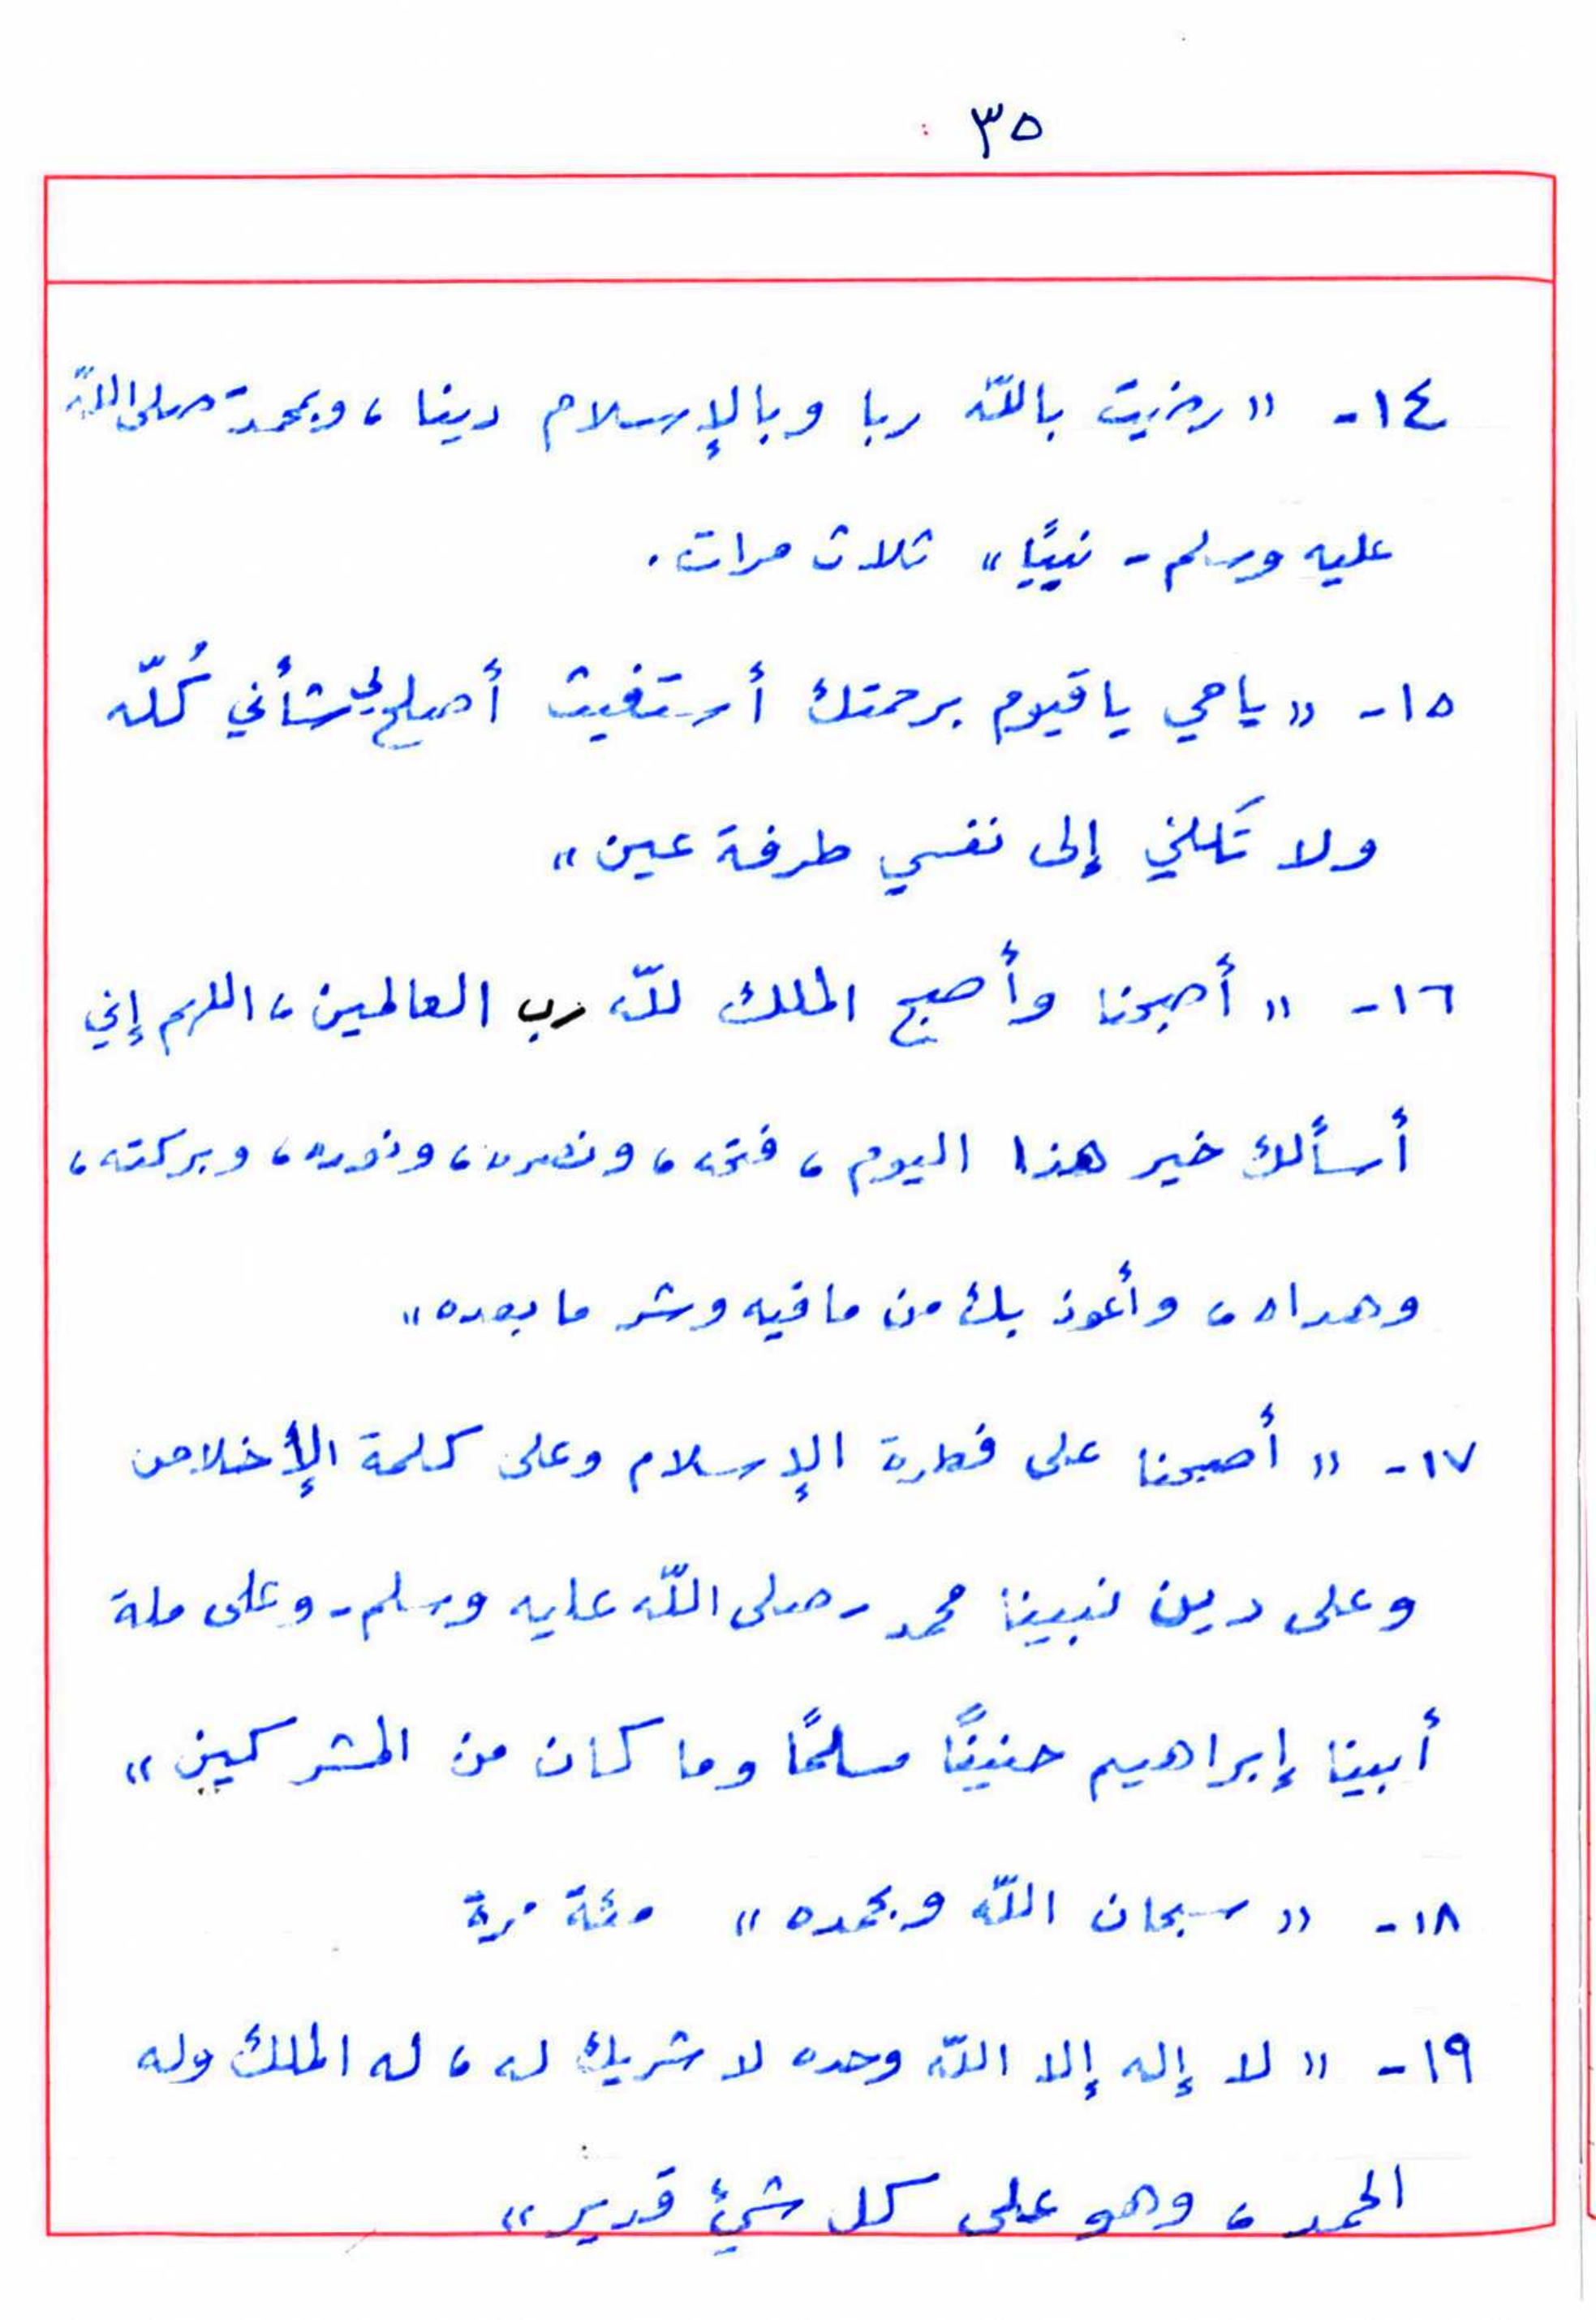 ٣٥
١٤- «رضيت بالله ربا وبالإسلام دينا، وبمحمد - صلى الله
عليه وسلم - نبيًا» ثلاث مرات.
١٥- «يا حي يا قيوم برحمتك أستغيث أصلح لي شأني كُلّه
ولا تَكلني إلى نفسي طرفة عين»
١٦- «أصبحنا وأصبح الملك للّه رب العالمين، اللهم إني
أسألك خير هذا اليوم، فتحه، ونصره، ونوره، وبركته،
وهداه، وأعوذ بك من ما فيه وشر ما بعده»
١٧- «أصبحنا على فطرة الإسلام وعلى كلمة الإخلاص
وعلى دين نبينا محمد - صلى اللّه عليه وسلم - وعلى ملة
أبينا إبراهيم حنيفًا مسلمًا وما كان من المشركين»
١٨- «سبحان اللّه وبحمده» مئة مرة
١٩- «لا إله إلا اللّه وحده لا شريك له، له الملك وله
الحمد، وهو على كل شيء قدير»